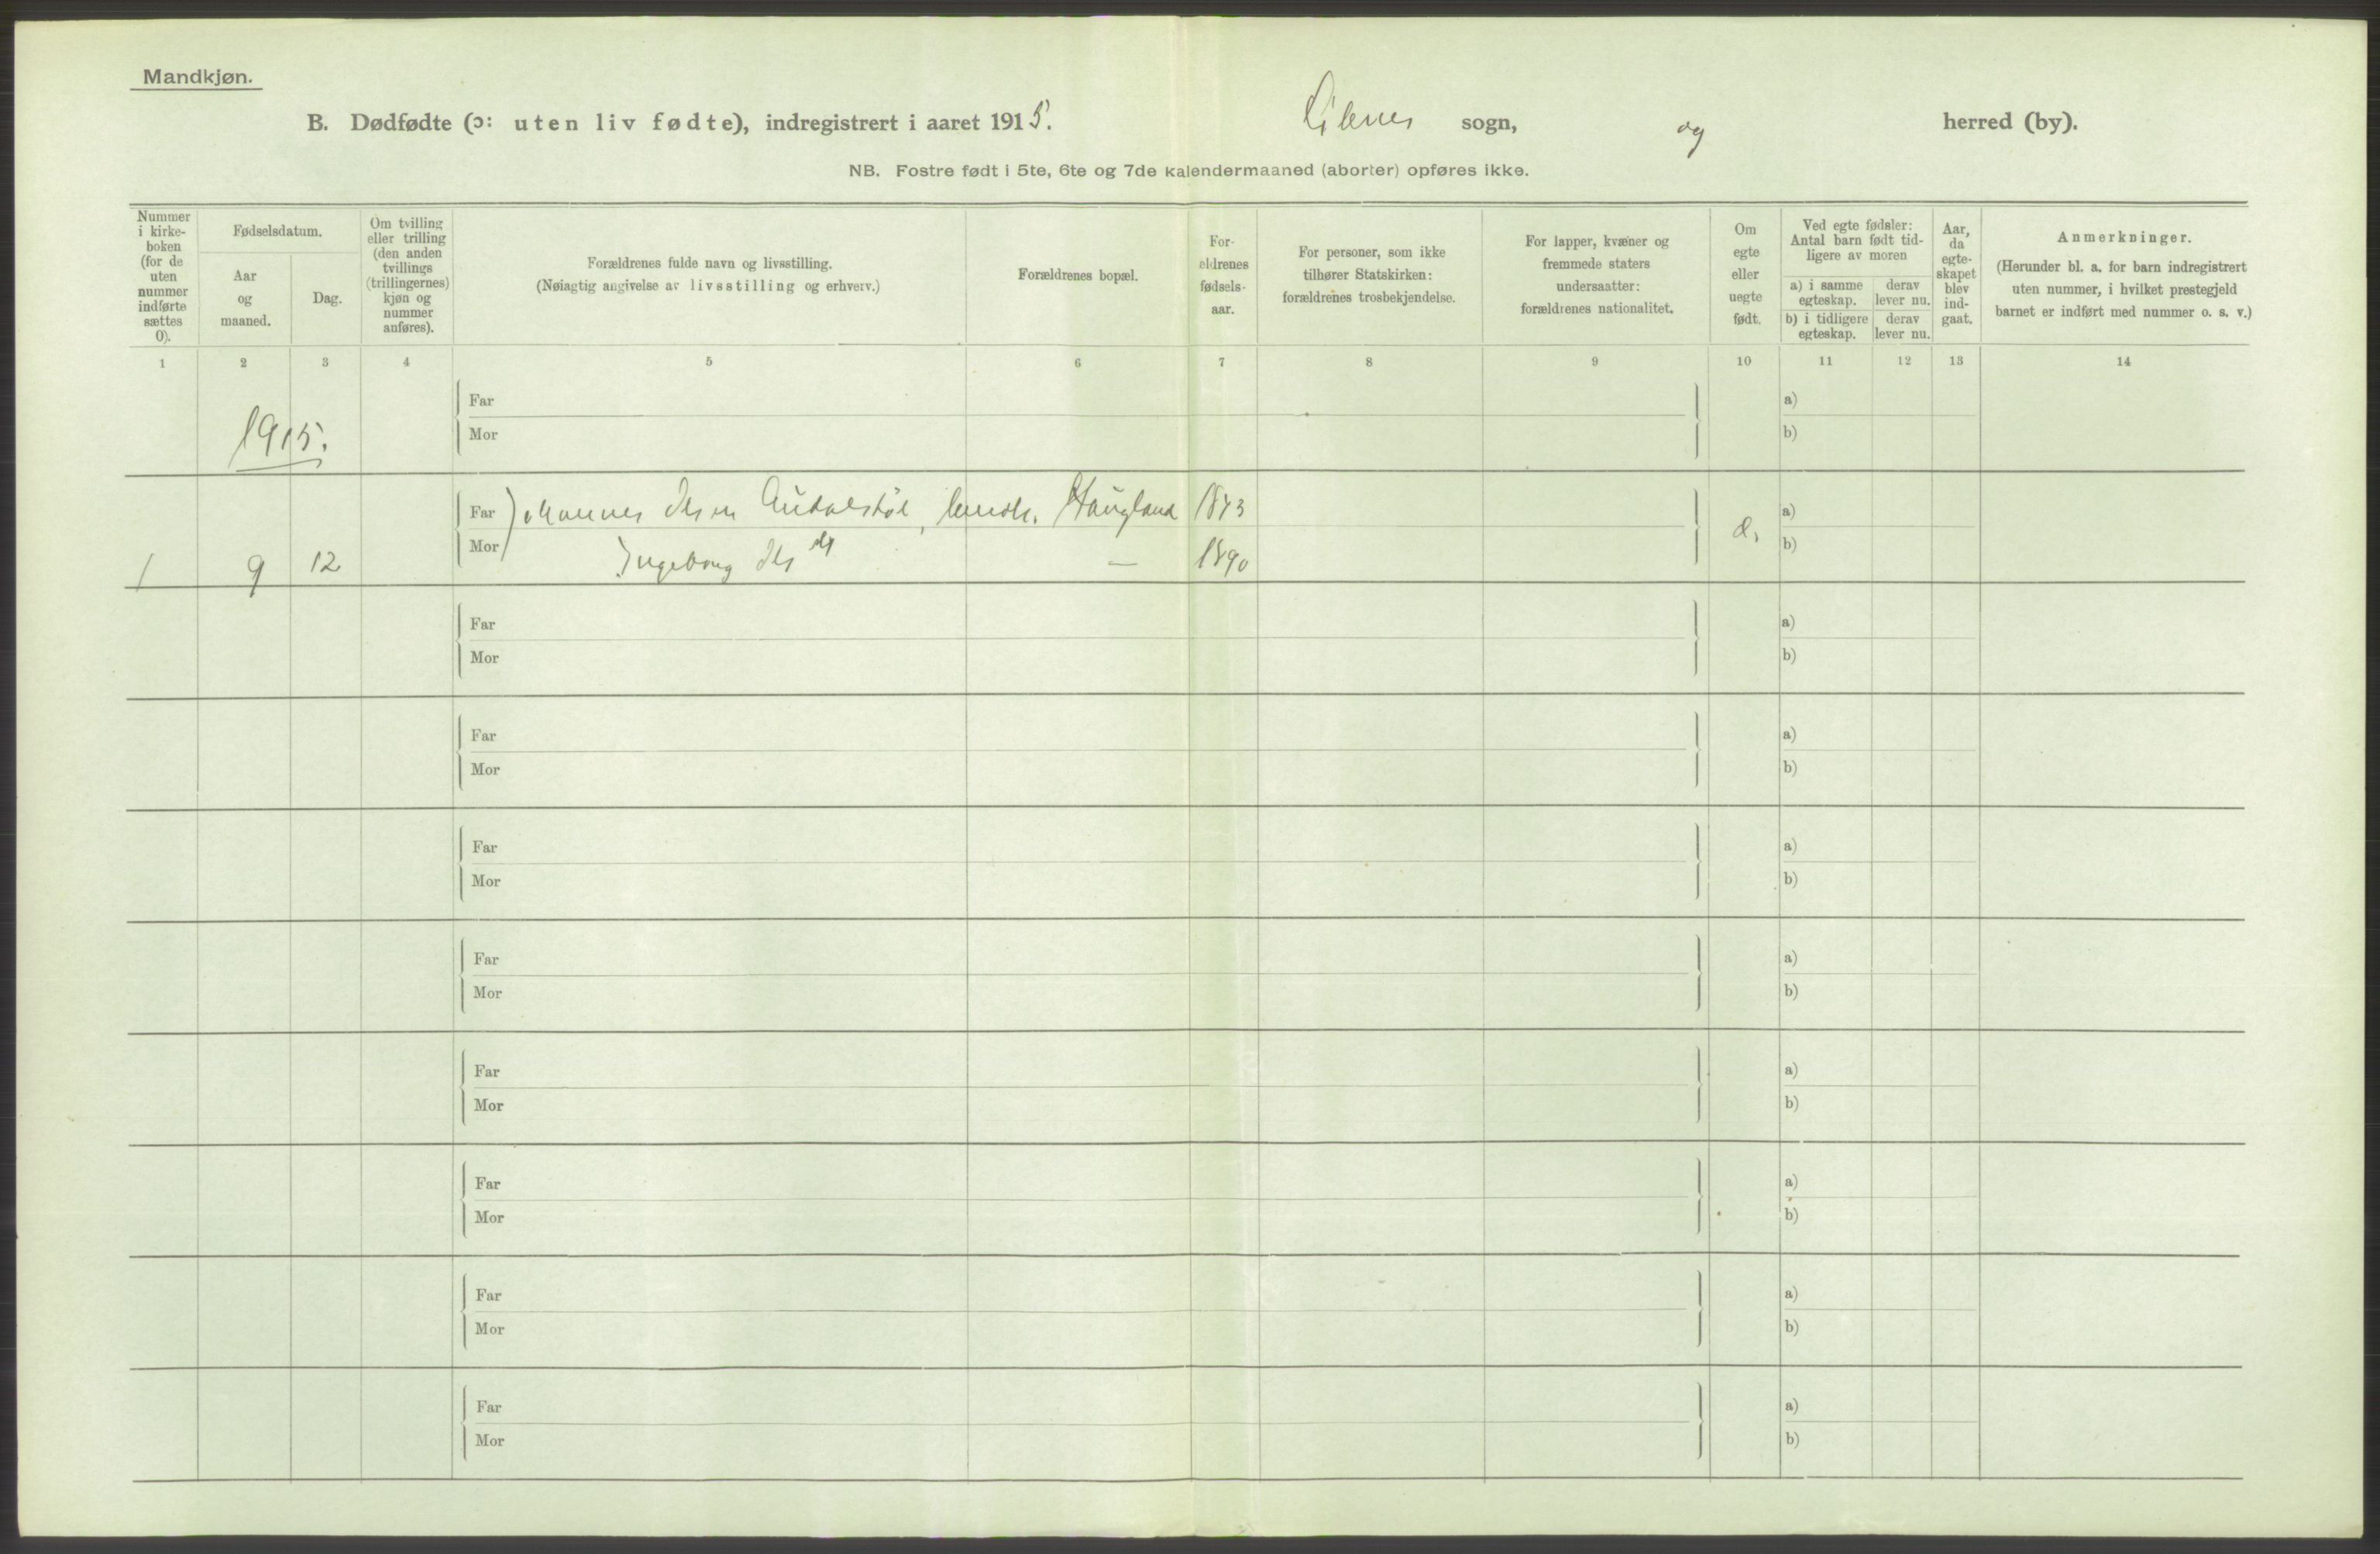 Mandkjøn.
B. Dødfødte (ɔ: uten liv fødte), indregistrert i aaret 1915. sogn, og herred (by).
NB. Fostre født i 5te, 6te og 7de kalendermaaned (aborter) opføres ikke.
Nummer i kirke- boken (for de uten nummer indførte sættes 0).
Fødselsdatum.
Aar og maaned.
Dag.
Om tvilling eller trilling (den anden tvillings (trillingernes) kjøn og nummer anføres).
Forældrenes fulde navn og livsstilling.
(Nøiagtig angivelse av livsstilling og erhverv.)
Forældrenes bopæl.
For- ældrenes fødsels- aar.
For personer, som ikke tilhører Statskirken: forældrenes trosbekjendelse.
For lapper, kvæner og fremmede staters undersaatter: forældrenes nationalitet.
Om egte eller uegte født.
Ved egte fødsler: Antal barn født tid- ligere av moren
a) i samme egteskap.
derav lever nu.
b) i tidligere egteskap.
derav lever nu.
Aar, da egte- skapet blev ind- gaat.
Anmerkninger.
(Herunder bl. a. for barn indregistrert uten nummer, i hvilket prestegjeld barnet er indført med nummer o. s. v.)
1 2 3 4 5 6 7 8 9 10 11 12 13 14
Far a)
1915.
Mor b)
Far Johannes Haugland 1873 a)
Mor b)
1 9 12 Ingeborg — 1890
Far a)
Mor b)
Far a)
Mor b)
Far a)
Mor b)
Far a)
Mor b)
Far a)
Mor b)
Far a)
Mor b)
Far a)
Mor b)
Far a)
Mor b)